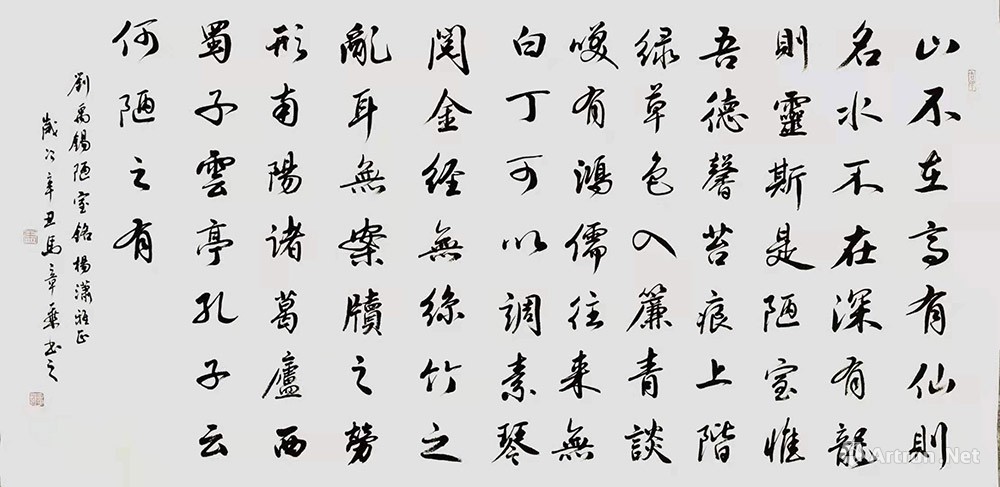 山不在高有仙則
名水不在深有龍
則靈斯是陋室惟
吾德馨苔痕上階
緑草色入簾青談
咲有鴻儒往来無
白丁可以調素琴
閲金經無絲竹之
亂耳無案牘之勞
形南陽諸葛廬西
蜀子雲亭孔子云
何陋之有
劉禹錫陋室銘 楊瀟雅正
歲次辛丑馬章乘書之
Artron.Net